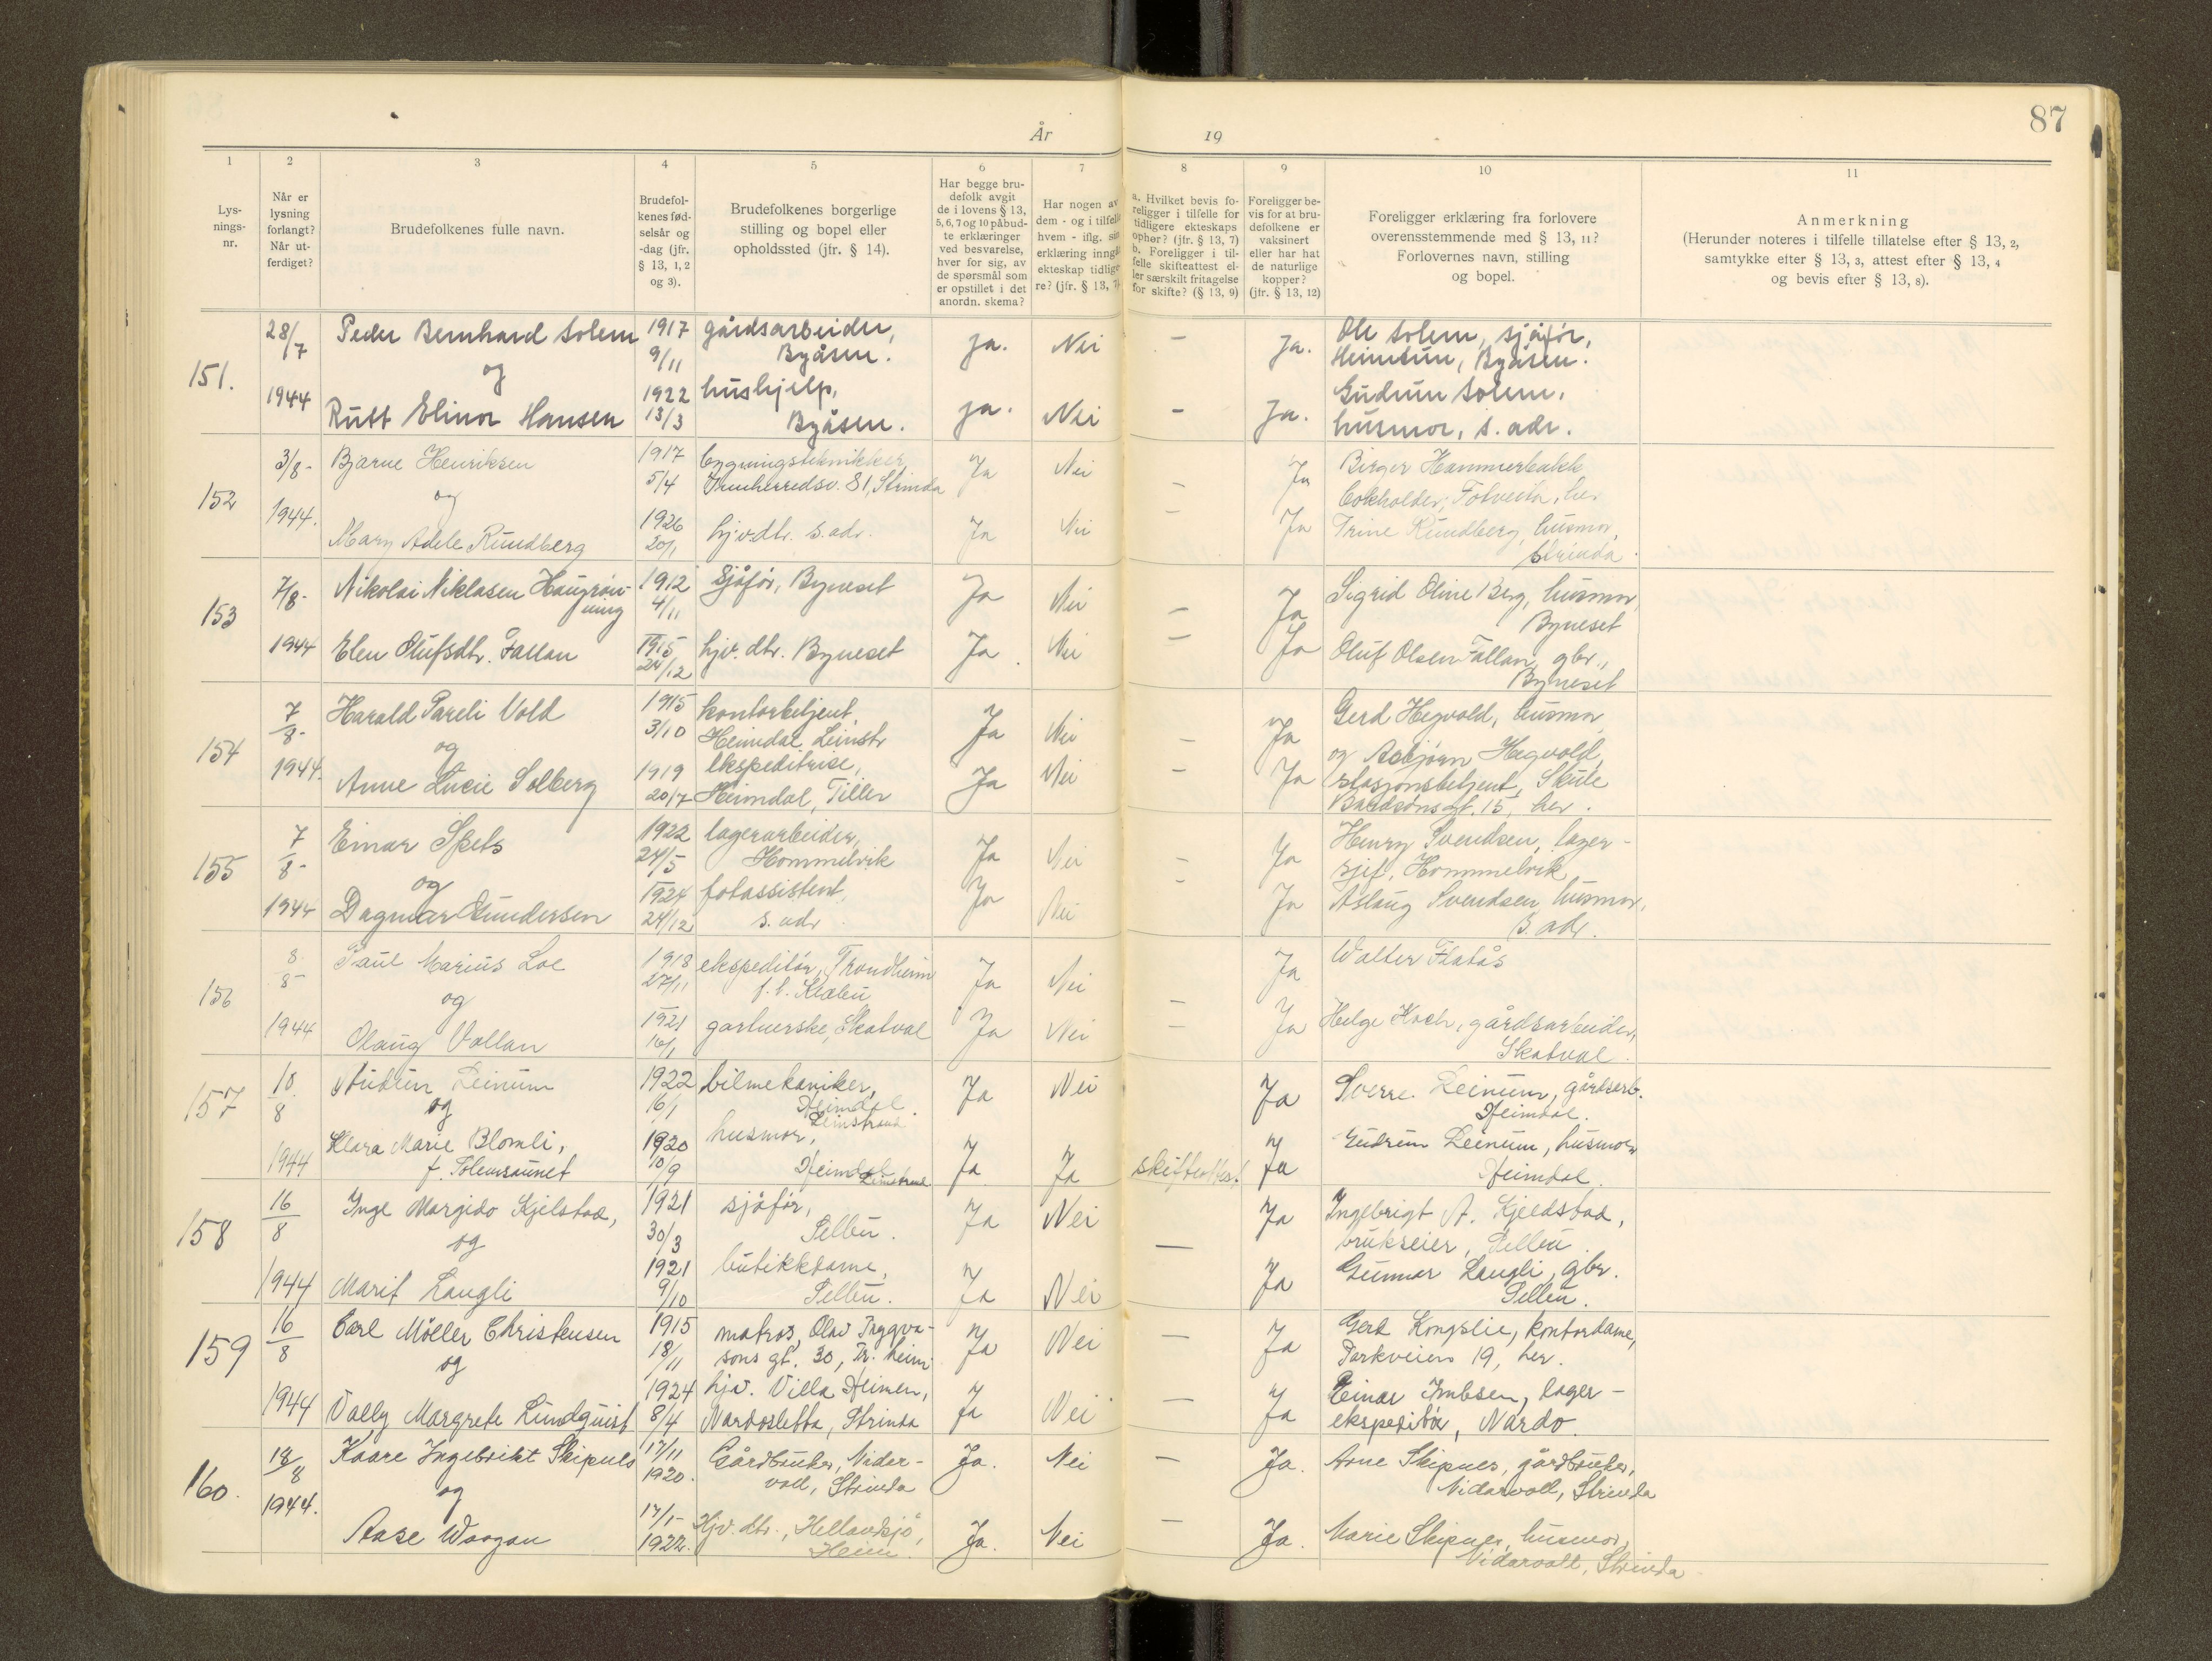 87
År 19
1 2 3 4 5 6 7 8 9 10 11
Lys-
nings-
nr.
Når er
lysning
forlangt?
Når ut-
ferdiget?
Brudefolkenes fulle navn.
Brudefol-
kenes fød-
selsår og
-dag (jfr.
§ 13, 1, 2
og 3).
Brudefolkenes borgerlige
stilling og bopel eller
opholdssted (jfr. § 14).
Har begge bru-
defolk avgit
de i lovens § 13,
5, 6, 7 og 10 påbud-
te erklæringer
ved besvarelse,
hver for sig, av
de spørsmål som
er opstillet i det
anordn. skema?
Har nogen av
dem - og i tilfelle
hvem - iflg. sin
erklæring inngått
ekteskap tidlige-
re? (jfr. § 13, 7)
a. Hvilket bevis fo-
religger i tilfelle for
tidligere ekteskaps
ophør? (jfr. § 13, 7)
b. Foreligger i til-
felle skifteattest el-
ler særskilt fritagelse
for skifte? (§ 13, 9)
Foreligger be-
vis for at bru-
defolkene er
vaksinert
eller har hat
de naturlige
kopper?
(jfr. § 13, 12)
Foreligger erklæring fra forlovere
overensstemmende med § 13, 11?
Forlovernes navn, stilling
og bopel.
Anmerkning
(Herunder noteres i tilfelle tillatelse efter § 13, 2,
samtykke efter § 13, 3, attest efter § 13, 4
og bevis efter § 13, 8).
151. 28/7 Peder Bernhard Solem 1917 gårdsarbeider, ja. Nei - ja. Ole Solem, sjåfør,
9/11 Byåsen. Heimtun, Byåsen.
og
1944 1922 hushjelp, Gudrun Solem,
Rutt Elinor Hansen 13/3 Byåsen. ja. Nei - ja. husmor, s. adr.
152 3/8- Bjarne Henriksen 1917 bygningstekniker Ja Nei - Ja Birger Hammerbakk
5/4 Innherredsv. 81, Strinda
og Fotveita, her
1944. 1926 hjv.dtr. s. adr. Ja Nei - Ja Trine Rundberg, husmor,
Mary Adele Rundberg 20/1 Strinda.
153 7/8- Nikolai Niklasen Haugrøn- 1912 Sjåfør, Byneset Ja Nei - Ja Sigrid Oline Berg, husmor,
ning 4/11 Byneset
1944 Elen Olufsdtr. Fallan 1915 hjv. dtr. Byneset Ja. Nei - Ja Oluf Olsen Fallan, gbr.,
24/12 Byneset
154 7/8- Harald Pareli Vold 1915 kontorbetjent, Ja Nei - Ja Gerd Hegvold, husmor
3/10 Heimdal, Leinstr
og og Asbjørn Hegvold,
1944. 1919 ekspeditrise, Ja Nei - Ja stasjonsbetjent, Skule
Anne Lucie Solberg 20/7 Heimdal, Tiller Baardsønsgt. 15, her.
155 7/8- Einar Spets 1922 lagerarbeider, Ja Nei - Ja Henry Svendsen, lager-
24/5 Hommelvik sjef, Hommelvik
og
1944 Dagmar Gundersen 1924 fotassistent, Ja Nei - Ja Aslaug Svendsen husmor,
24/12 s. adr. s. adr.
156 8/8- Paul Marius Loe 1918 ekspeditør, Trondheim Ja Nei - Ja Walter Flatås
27/11 f. t. Klæbu
og
1944 1921 gartnerske, Skatval Ja Nei - Ja Helge Koch, gårdsarbeider,
Olaug Vollan 16/1 Skatval.
157 10/8 Audun Leinum 1922 bilmekaniker, Ja Nei Ja Sverre Leinum, gårdsarb.
16/1 Heimdal. Heimdal.
og Leinstrand
Klara Marie Blomli, 1920 husmor, Gudrun Leinum, husmor
1944 f. Solemsaunet 10/9 Heimdal Ja Ja skifteattest Ja Heimdal.
Leinstrand
158 16/8 Inge Margido Kjelstad, 1921 sjåfør, Ja Nei Ja Ingebrigt A. Kjeldstad,
30/3 Selbu. brukseier, Selbu.
og —
1921 butikkdame, Gunnar Langli, gbr.
1944 Marit Langli 9/10 Selbu. Ja Nei Ja Selbu.
159 16/8 Carl Møller Christensen 1915 matros, Olav Tryggva- Ja Nei - Ja Gerd Kongslie, kontordame,
18/11 sons gt. 30, Tr. heim Parkveien 19, her.
og
1924 hjv. Villa Heimen, Einar Imbsen, lager-
1944 Vally Margrete Lundquist 8/4 Nardosletta, Strinda Ja Nei - Ja ekspeditør, Nardo.
160. 18/8 Kaare Ingebrikt Skipnes 17/11 Gårdbruker, Nider- Ja. Nei - Ja. Arne Skipnes, gårdbruker,
1920. voll, Strinda Nidarvoll, Strinda
1944. og
17/1- Hjv. dtr., Hellandsjø, - Marie Skipnes, husmor,
Aase Waagan 1922. Heim. Ja. Nei Ja. Nidarvoll, Strinda